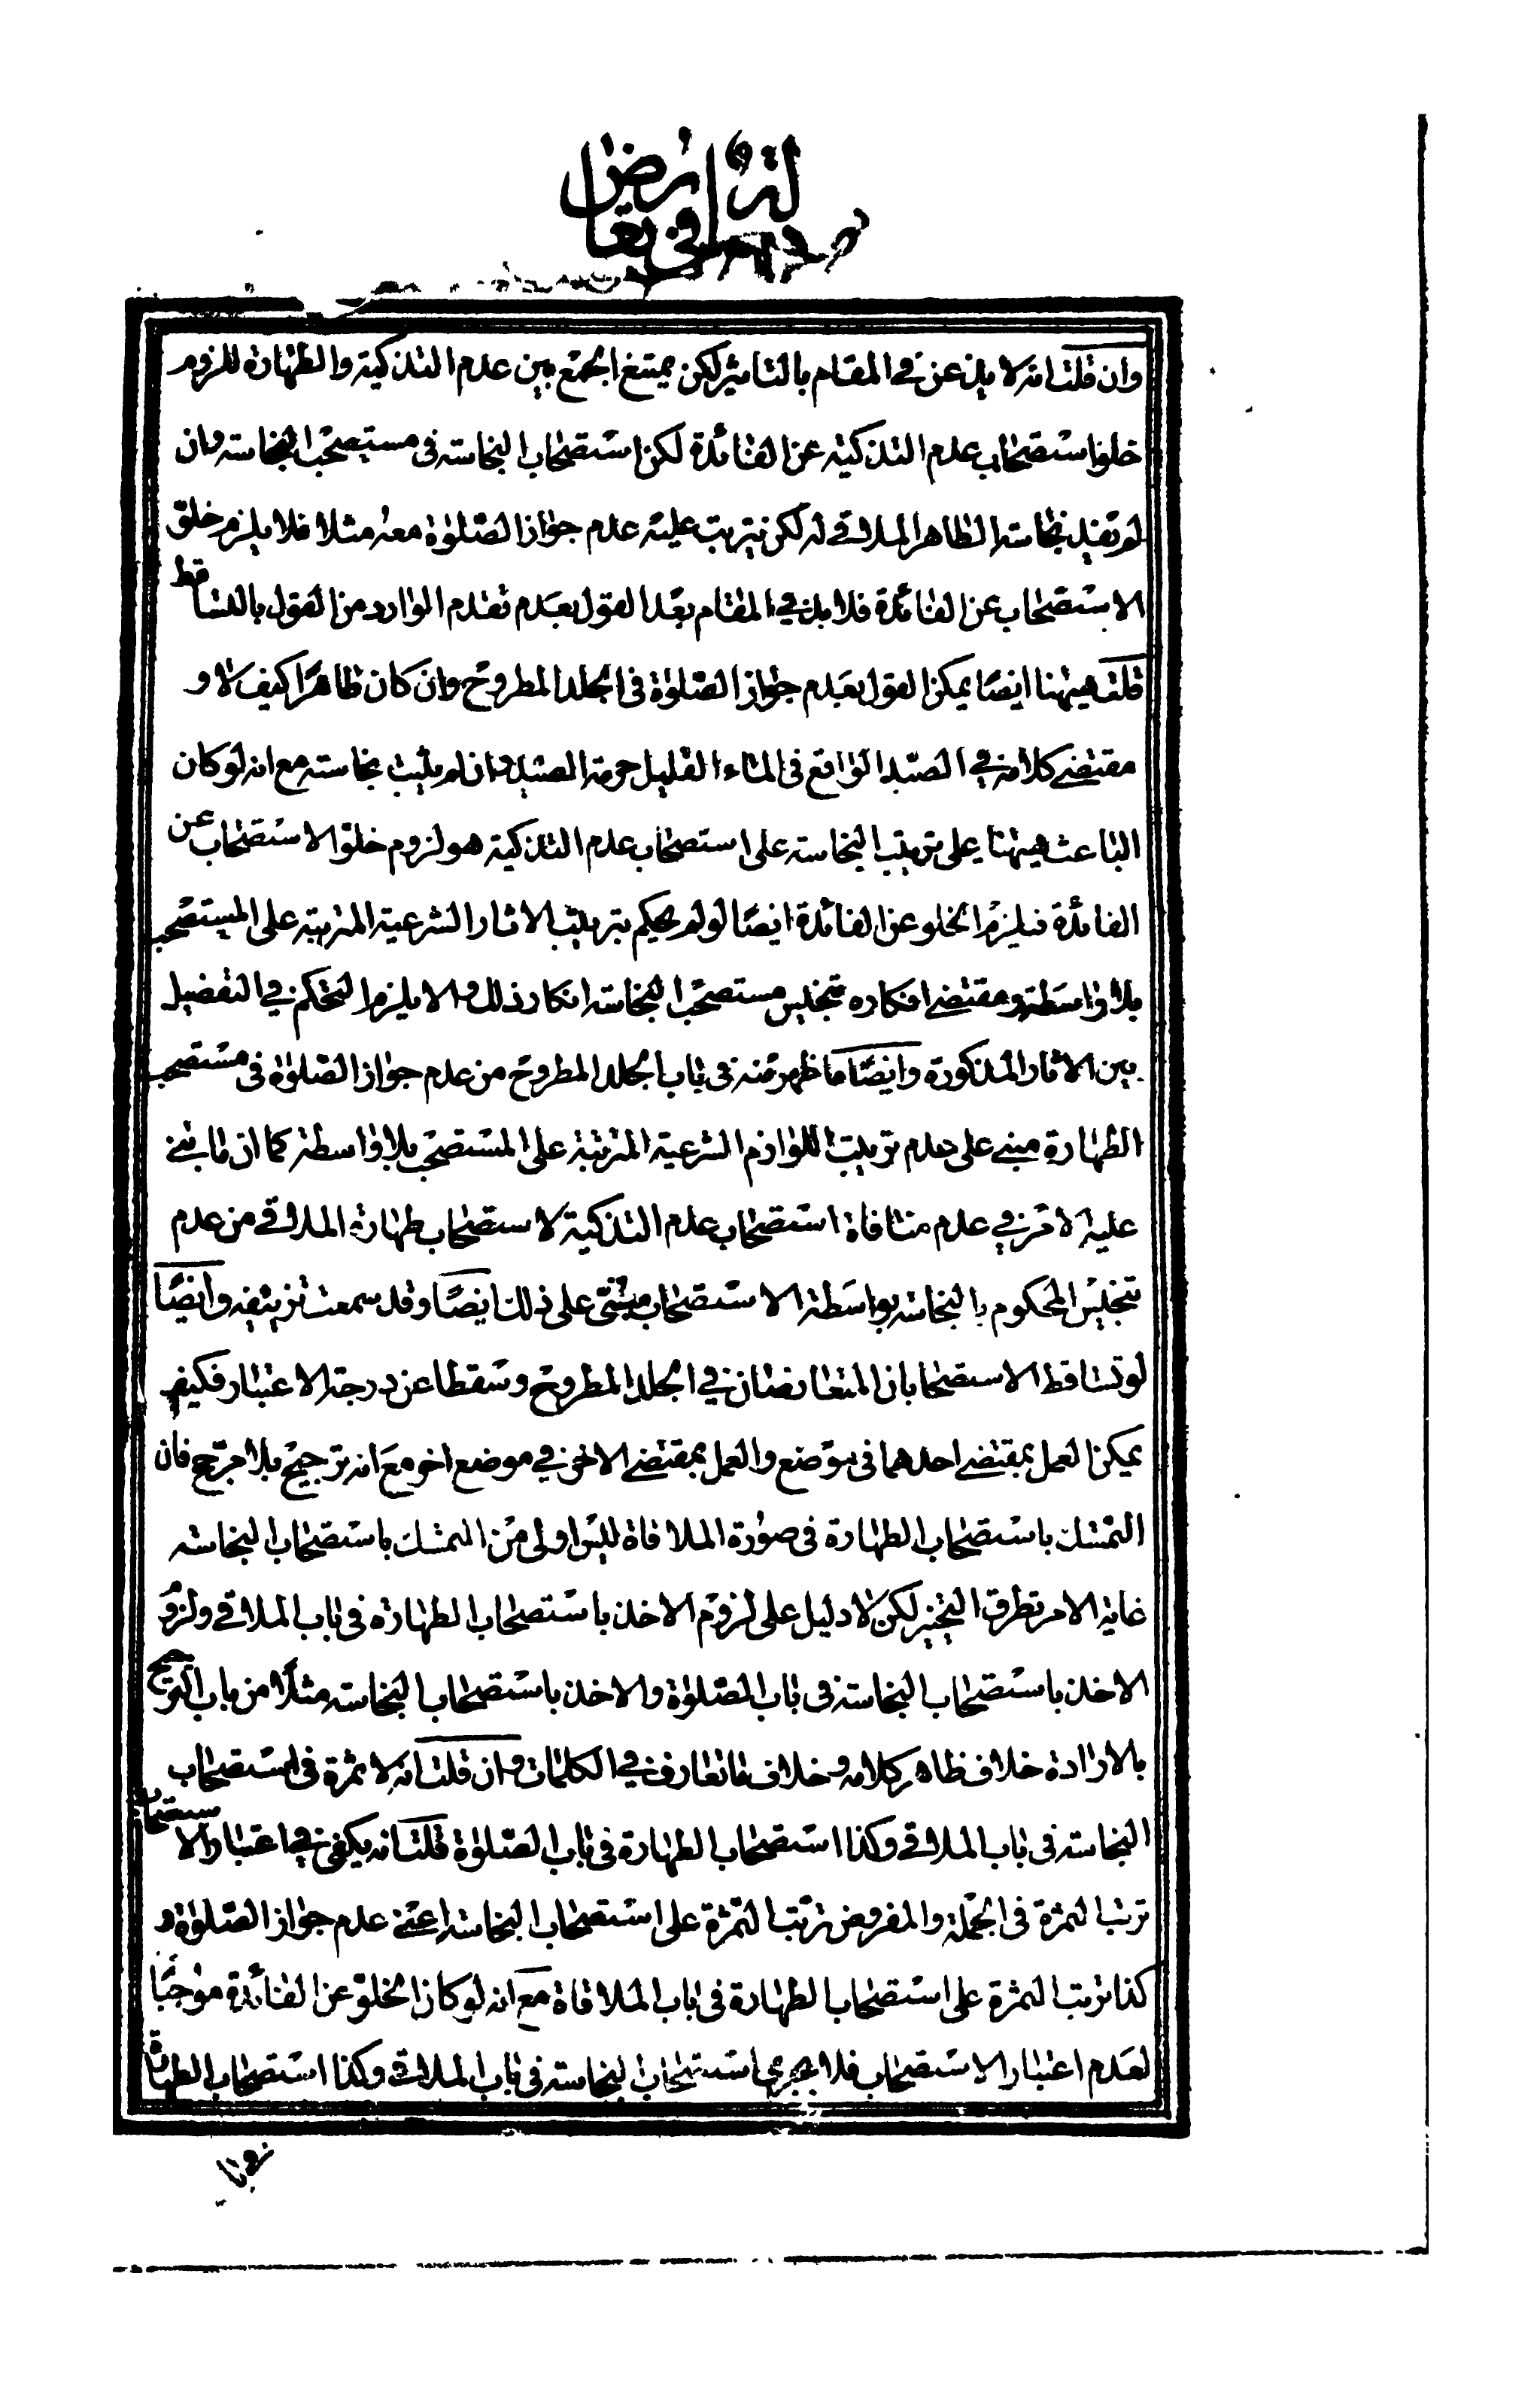 وان قلت انه لا بد عن في المقام بالتاثير لكن يمتنع الجمع بين عدم التذكية والطهارة للزوم
خلو استصحاب عدم التذكية عن الفائدة لكن استصحاب النجاسة فى مستصحب النجاسة وان
لم تفد نجاسة الطاهر الملاقي له لكن يترتب عليه عدم جواز الصّلوة معه مثلا فلا يلزم خلوّ
الاستصحاب عن الفائدة فلا بد في المقام بعد القول بعدم تقدم الوارد من القول بالتساقط
قلت هيهنا ايضا يمكن القول بعدم جواز الصّلوة فى الجلد المطروح وان كان طاهرًا كيف لا و
مقتضى كلامه في الصّيد الواقع فى الماء القليل حرمة الصّيد وان لم يثبت نجاسته مع انه لو كان
الباعث هيهنا على ترتيب النجاسة على استصحاب عدم التذكية هو لزوم خلوّ الاستصحاب عن
الفائدة فيلزم الخلو عن الفائدة ايضًا لو لم يحكم بترتيب الاثار الشرعية المترتبة على المستصحب
بلا واسطة ومقتضى انكاره تنجيس مستصحب النجاسة انكار ذلك والا يلزم التحكم في التفصيل
بين الاثار المذكورة وايضًا ما ظهر منه فى باب الجلد المطروح من عدم جواز الصّلوة فى مستصحب
الطهارة مبني على عدم ترتيب اللوازم الشرعية المترتبة على المستصحب بلا واسطة كما ان ما بني
عليه الامر في عدم منافاة استصحاب عدم التذكية لاستصحاب طهارة الملاقي من عدم
تنجيس المحكوم بالنجاسة بواسطة الاستصحاب مبتنى على ذلك ايضًا وقد سمعت تزييفه وايضًا
لو تساقط الاستصحابان المتعارضان في الجلد المطروح وسقطا عن درجة الاعتبار فكيف
يمكن العمل بمقتضى احدهما فى موضع والعمل بمقتضى الاخر في موضع اخر مع انه ترجيح بلا مرجّح فان
التمسّك باستصحاب الطهارة فى صورة الملاقاة ليس اولى من التمسّك باستصحاب النجاسة
غاية الامر تطرق التخيير لكن لا دليل على لزوم الاخذ باستصحاب الطهارة فى باب الملاقي ولزوم
الاخذ باستصحاب النجاسة فى باب الصّلوة والاخذ باستصحاب النجاسة مثلاً من باب الترجيح
بالارادة خلاف ظاهر كلامه وخلاف ما تعارف في الكلمات وان قلت انه لا ثمرة فى استصحاب
النجاسة فى باب الملاقي وكذا استصحاب الطهارة فى باب الصّلوة قلت انه يكفى في اعتبار الاستصحاب
ترتب الثمرة فى الجملة والمفروض ترتب الثمرة على استصحاب النجاسة اعني عدم جواز الصّلوة و
كذا ترتب الثمرة على استصحاب الطهارة فى باب الملاقاة مع انه لو كان الخلوّ عن الفائدة موجبًا
لعدم اعتبار الاستصحاب فلا يجرى استصحاب النجاسة فى باب الملاقي وكذا استصحاب الطهارة